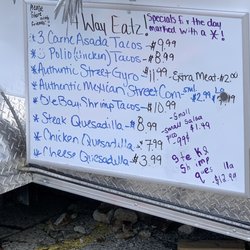 4 Way Eatz!
Specials for the day
marked with a *!
*3 Carne Asada Tacos - $9.99
* Pollo (chicken) Tacos - 8.99
Authentic Street Gyro $11.99 - Extra Meat + $2.00
*Authentic Mexican Street Corn - sml $2.99
*Ole Bay Shrimp Tacos - $10.99
* Steak Quesadilla - $8.99
* Chicken Quesadilla - $7.99
* Cheese Quesadilla - $3.99
- Small
small Salsa
pico $1.99
.99¢
$12.99